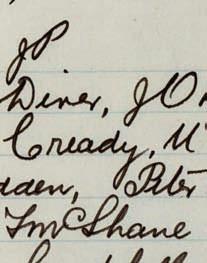 JP
Diver, JO
Cready, M
dden, Peter
McShane